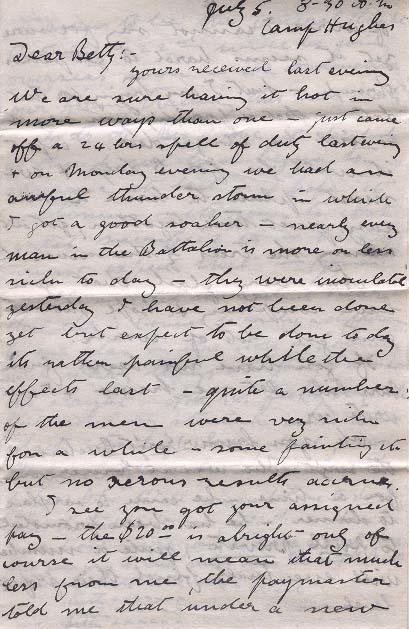 July 5. 3-30 a.m
Camp Hughes
Dear Betty:-
yours received last evening
We are sure having it hot in
more ways than one - just came
off a 24 hrs spell of duty last evning
+ on Monday evening we had an
awful thunder storm in which
I got a good soaker - nearly every
man in the Battalion is more or less
sick to day - they were inoculated
yesterday I have not been done
yet but expect to be done to day
its rather painful while the
effects last - quite a number
of the men were very sick
for a while - some fainting etc
but no serous results accrue.
I see you got your assigned
pay - the $20.00 is alright only of
course it will mean that much
less from me, the paymaster
told me that under a new